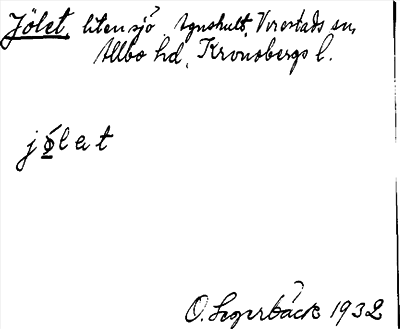 Jölet, liten sjö, Agnshult, Virestads sn,
Allbo hd, Kronobergs l.
jølet
O. Segerbäck 1932